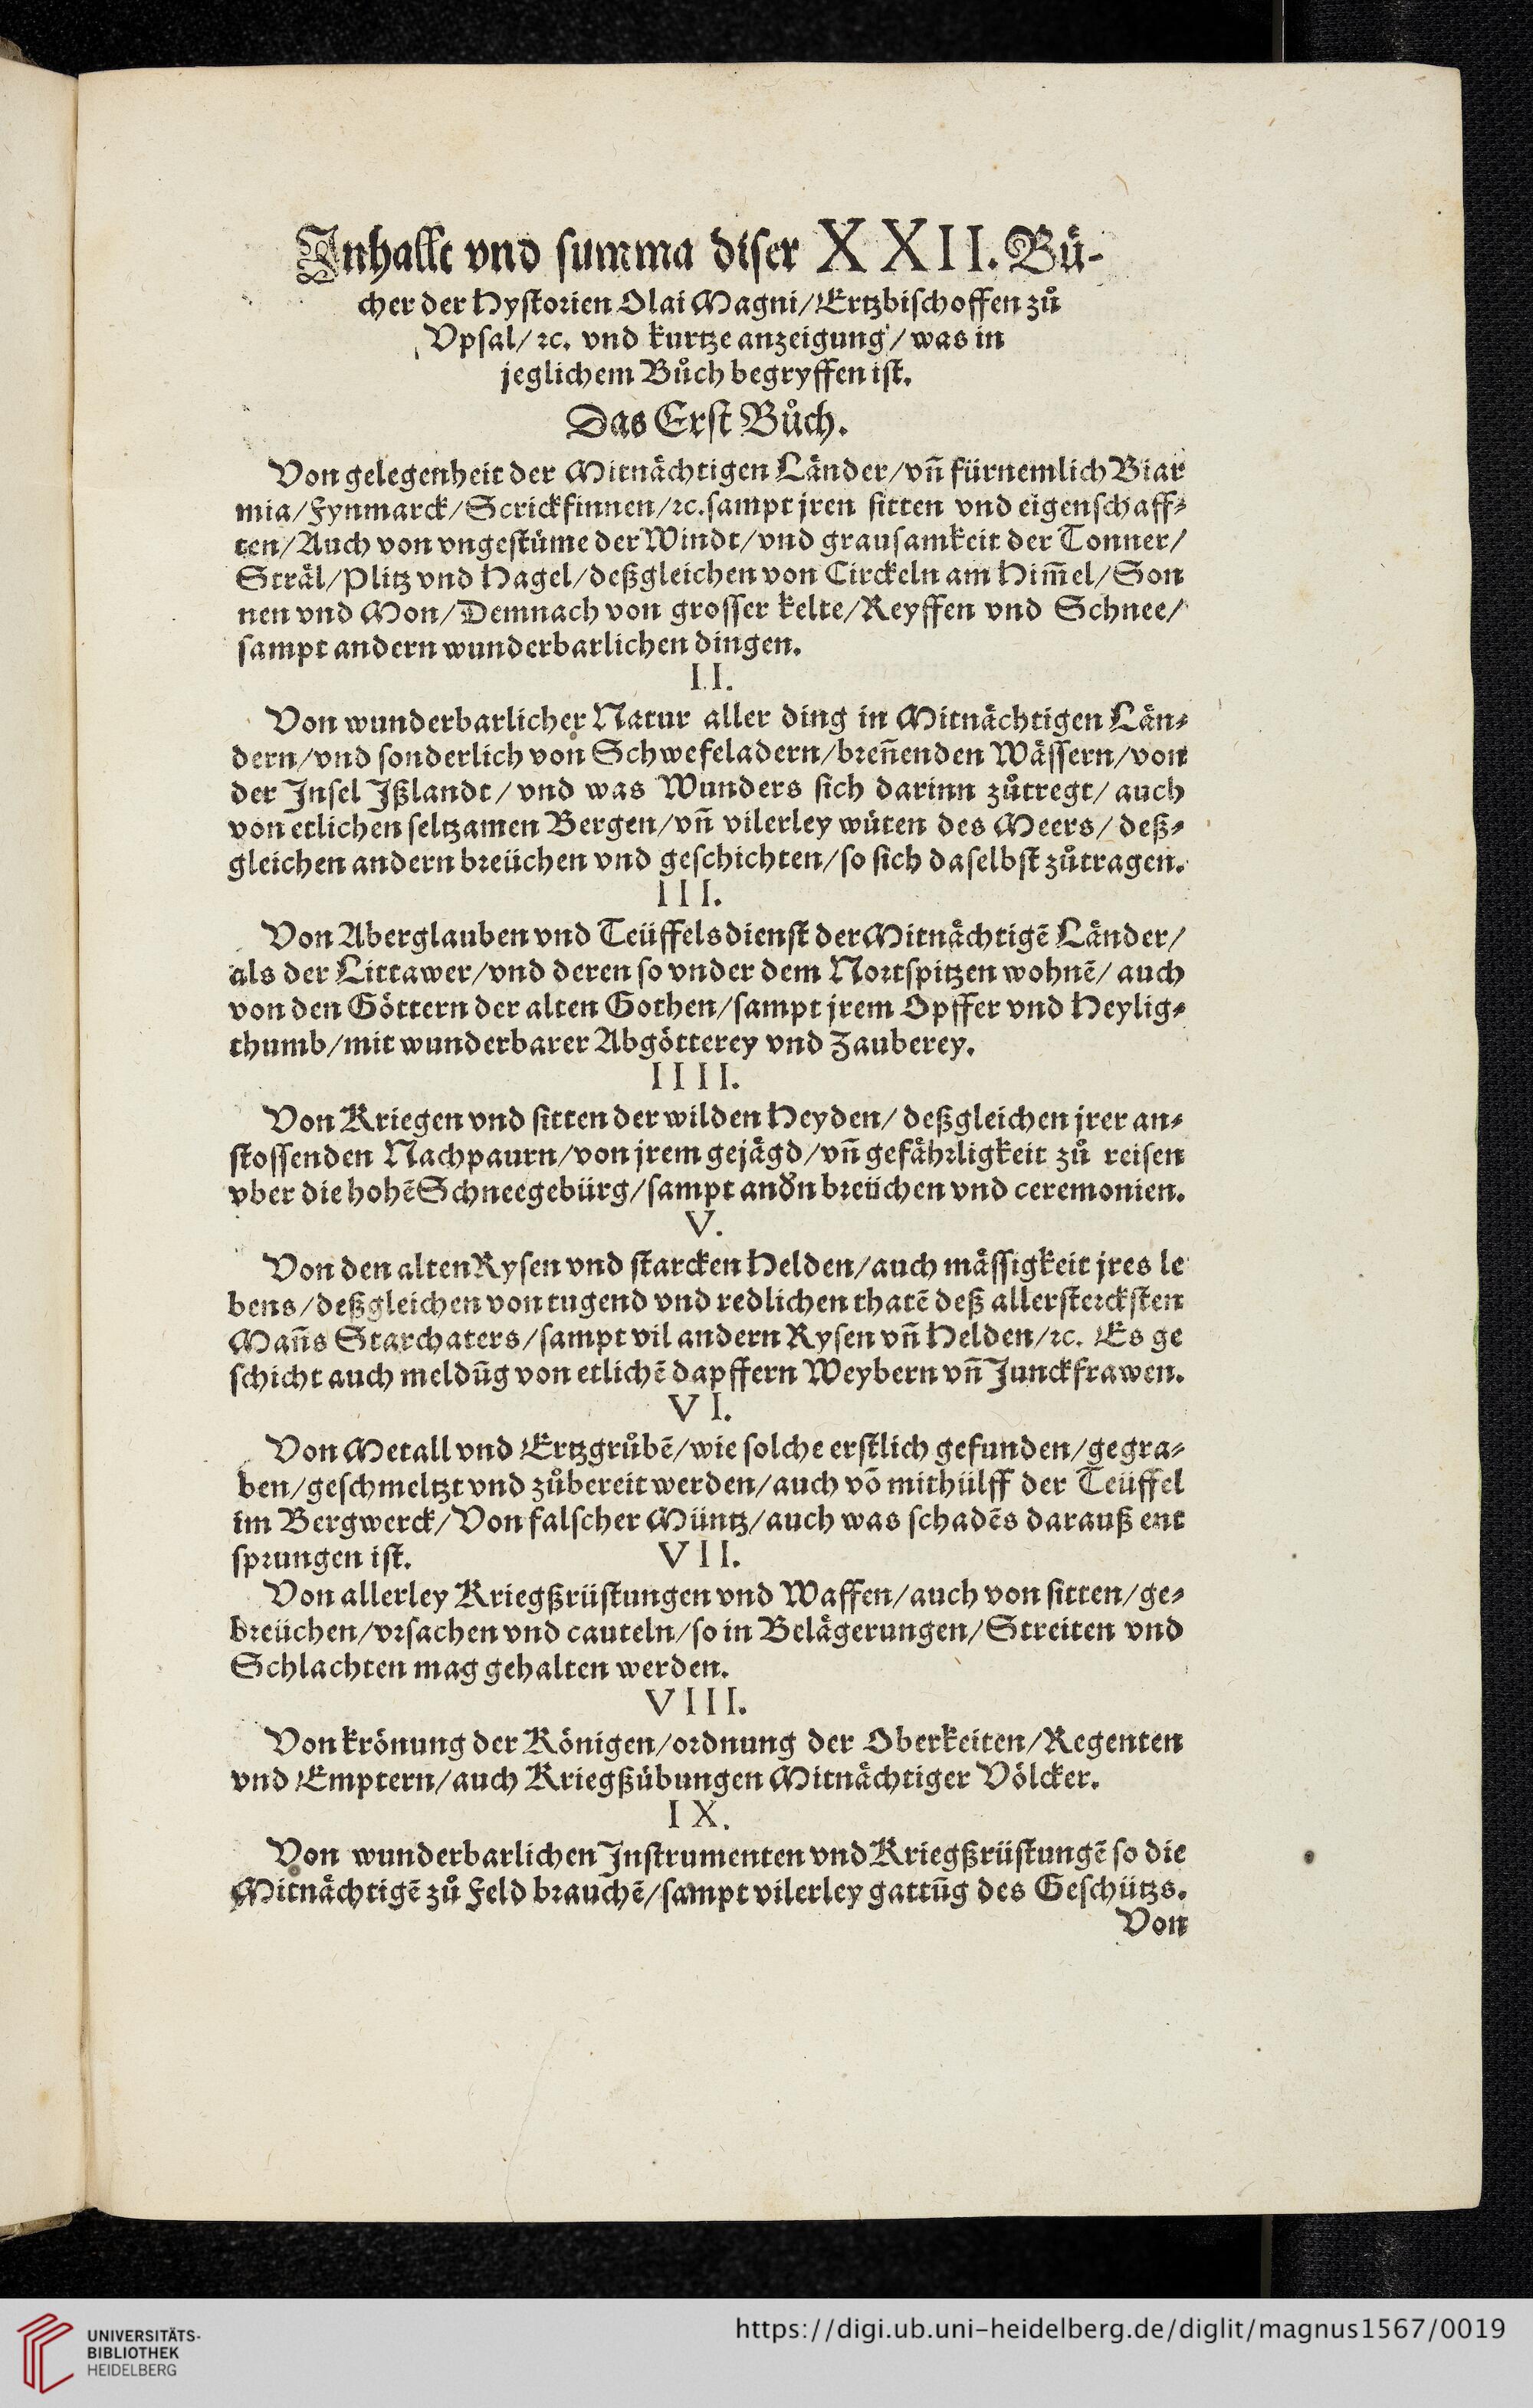 Inhallt vnd summa diser XXII. Bü-
cher der Hystorien Olai Magni/Ertzbischoffen zů
Vpsal/ ⁊c. vnd kurtze anzeigung/ was in
jeglichem Bůch begryffen ist.
Das Erst Bůch.
Von gelegenheit der Mitnächtigen Länder/vñ fürnemlich Biar
mia/Fynmarck/Scrickfinnen/⁊c.sampt jren sitten vnd eigenschaff⸗
ten/Auch von vngestüme der Windt/vnd grausamkeit der Tonner/
Sträl/Plitz vnd Hagel/deßgleichen von Circkeln am Him̃el/Son
nen vnd Mon/Demnach von grosser kelte/Reyffen vnd Schnee/
sampt andern wunderbarlichen dingen.
II.
Von wunderbarlicher Natur aller ding in Mitnächtigen Län⸗
dern/vnd sonderlich von Schwefeladern/breñenden Wässern/von
der Insel Ißlandt/ vnd was Wunders sich darinn zůtregt/ auch
von etlichen seltzamen Bergen/vñ vilerley wüten des Meers/ deß⸗
gleichen andern breüchen vnd geschichten/so sich daselbst zůtragen.
III.
Von Aberglauben vnd Teüffelsdienst der Mitnächtigẽ Länder/
als der Littawer/vnd deren so vnder dem Nortspitzen wohnẽ/ auch
von den Göttern der alten Gothen/sampt jrem Opffer vnd Heylig⸗
thumb/mit wunderbarer Abgötterey vnd Zauberey.
IIII.
Von Kriegen vnd sitten der wilden Heyden/ deßgleichen jrer an⸗
stossenden Nachpaurn/von jrem gejägd/vñ gefährligkeit zů reisen
vber die hohẽ Schneegebürg/sampt andn̄ breüchen vnd ceremonien.
V.
Von den alten Rysen vnd starcken Helden/auch mässigkeit jres le
bens/deßgleichen von tugend vnd redlichen thatẽ deß allerstercksten
Mañs Starchaters/sampt vil andern Rysen vñ Helden/⁊c. Es ge
schicht auch meldũg von etlichẽ dapffern Weybern vñ Junckfrawen.
VI.
Von Metall vnd Ertzgrůbẽ/wie solche erstlich gefunden/gegra⸗
ben/geschmeltzt vnd zůbereit werden/auch võ mithülff der Teüffel
im Bergwerck/Von falscher Müntz/auch was schadẽs darauß ent
sprungen ist. VII.
Von allerley Kriegßrüstungen vnd Waffen/auch von sitten/ge⸗
breüchen/vrsachen vnd cauteln/so in Belägerungen/Streiten vnd
Schlachten mag gehalten werden.
VIII.
Von krönung der Königen/ordnung der Oberkeiten/Regenten
vnd Emptern/auch Kriegßübungen Mitnächtiger Völcker.
IX.
Von wunderbarlichen Instrumenten vnd Kriegßrüstungẽ so die
Mitnächtigẽ zů Feld brauchẽ/sampt vilerley gattũg des Geschützs.
Von
UNIVERSITÄTS-
BIBLIOTHEK
HEIDELBERG
https://digi.ub.uni-heidelberg.de/diglit/magnus1567/0019